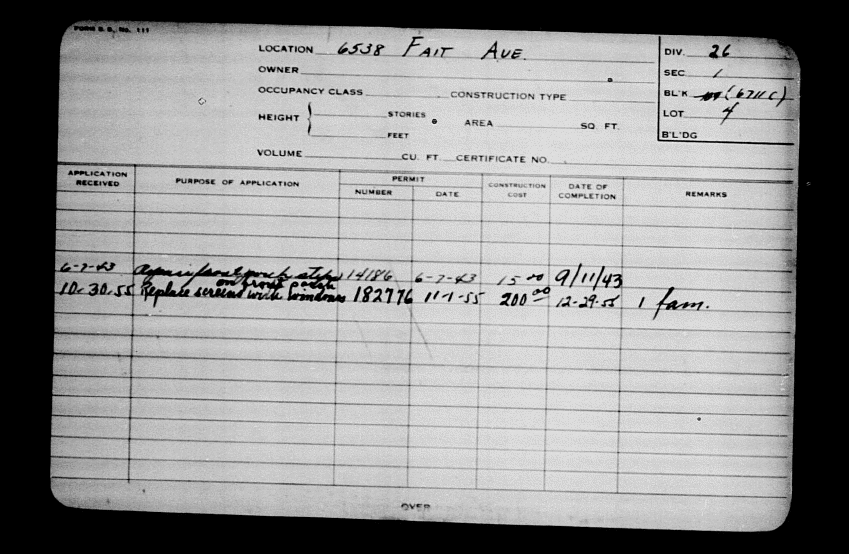 FORM B. B. No. 111
LOCATION 6538 FAIT AVE.
DIV. 26
OWNER
SEC. 1
OCCUPANCY CLASS CONSTRUCTION TYPE
BL'K (6711C)
HEIGHT { STORIES AREA SQ. FT.
LOT 4
FEET
B'L'DG
VOLUME CU. FT. CERTIFICATE NO.
APPLICATION RECEIVED PURPOSE OF APPLICATION PERMIT NUMBER DATE CONSTRUCTION COST DATE OF COMPLETION REMARKS
6-7-43 front porch steps 14186 6-7-43 15 00 9/11/43
on front porch
10-30-55 Replace screens with windows 182776 11-1-55 200 00 12-29-55 1 fam.
OVER